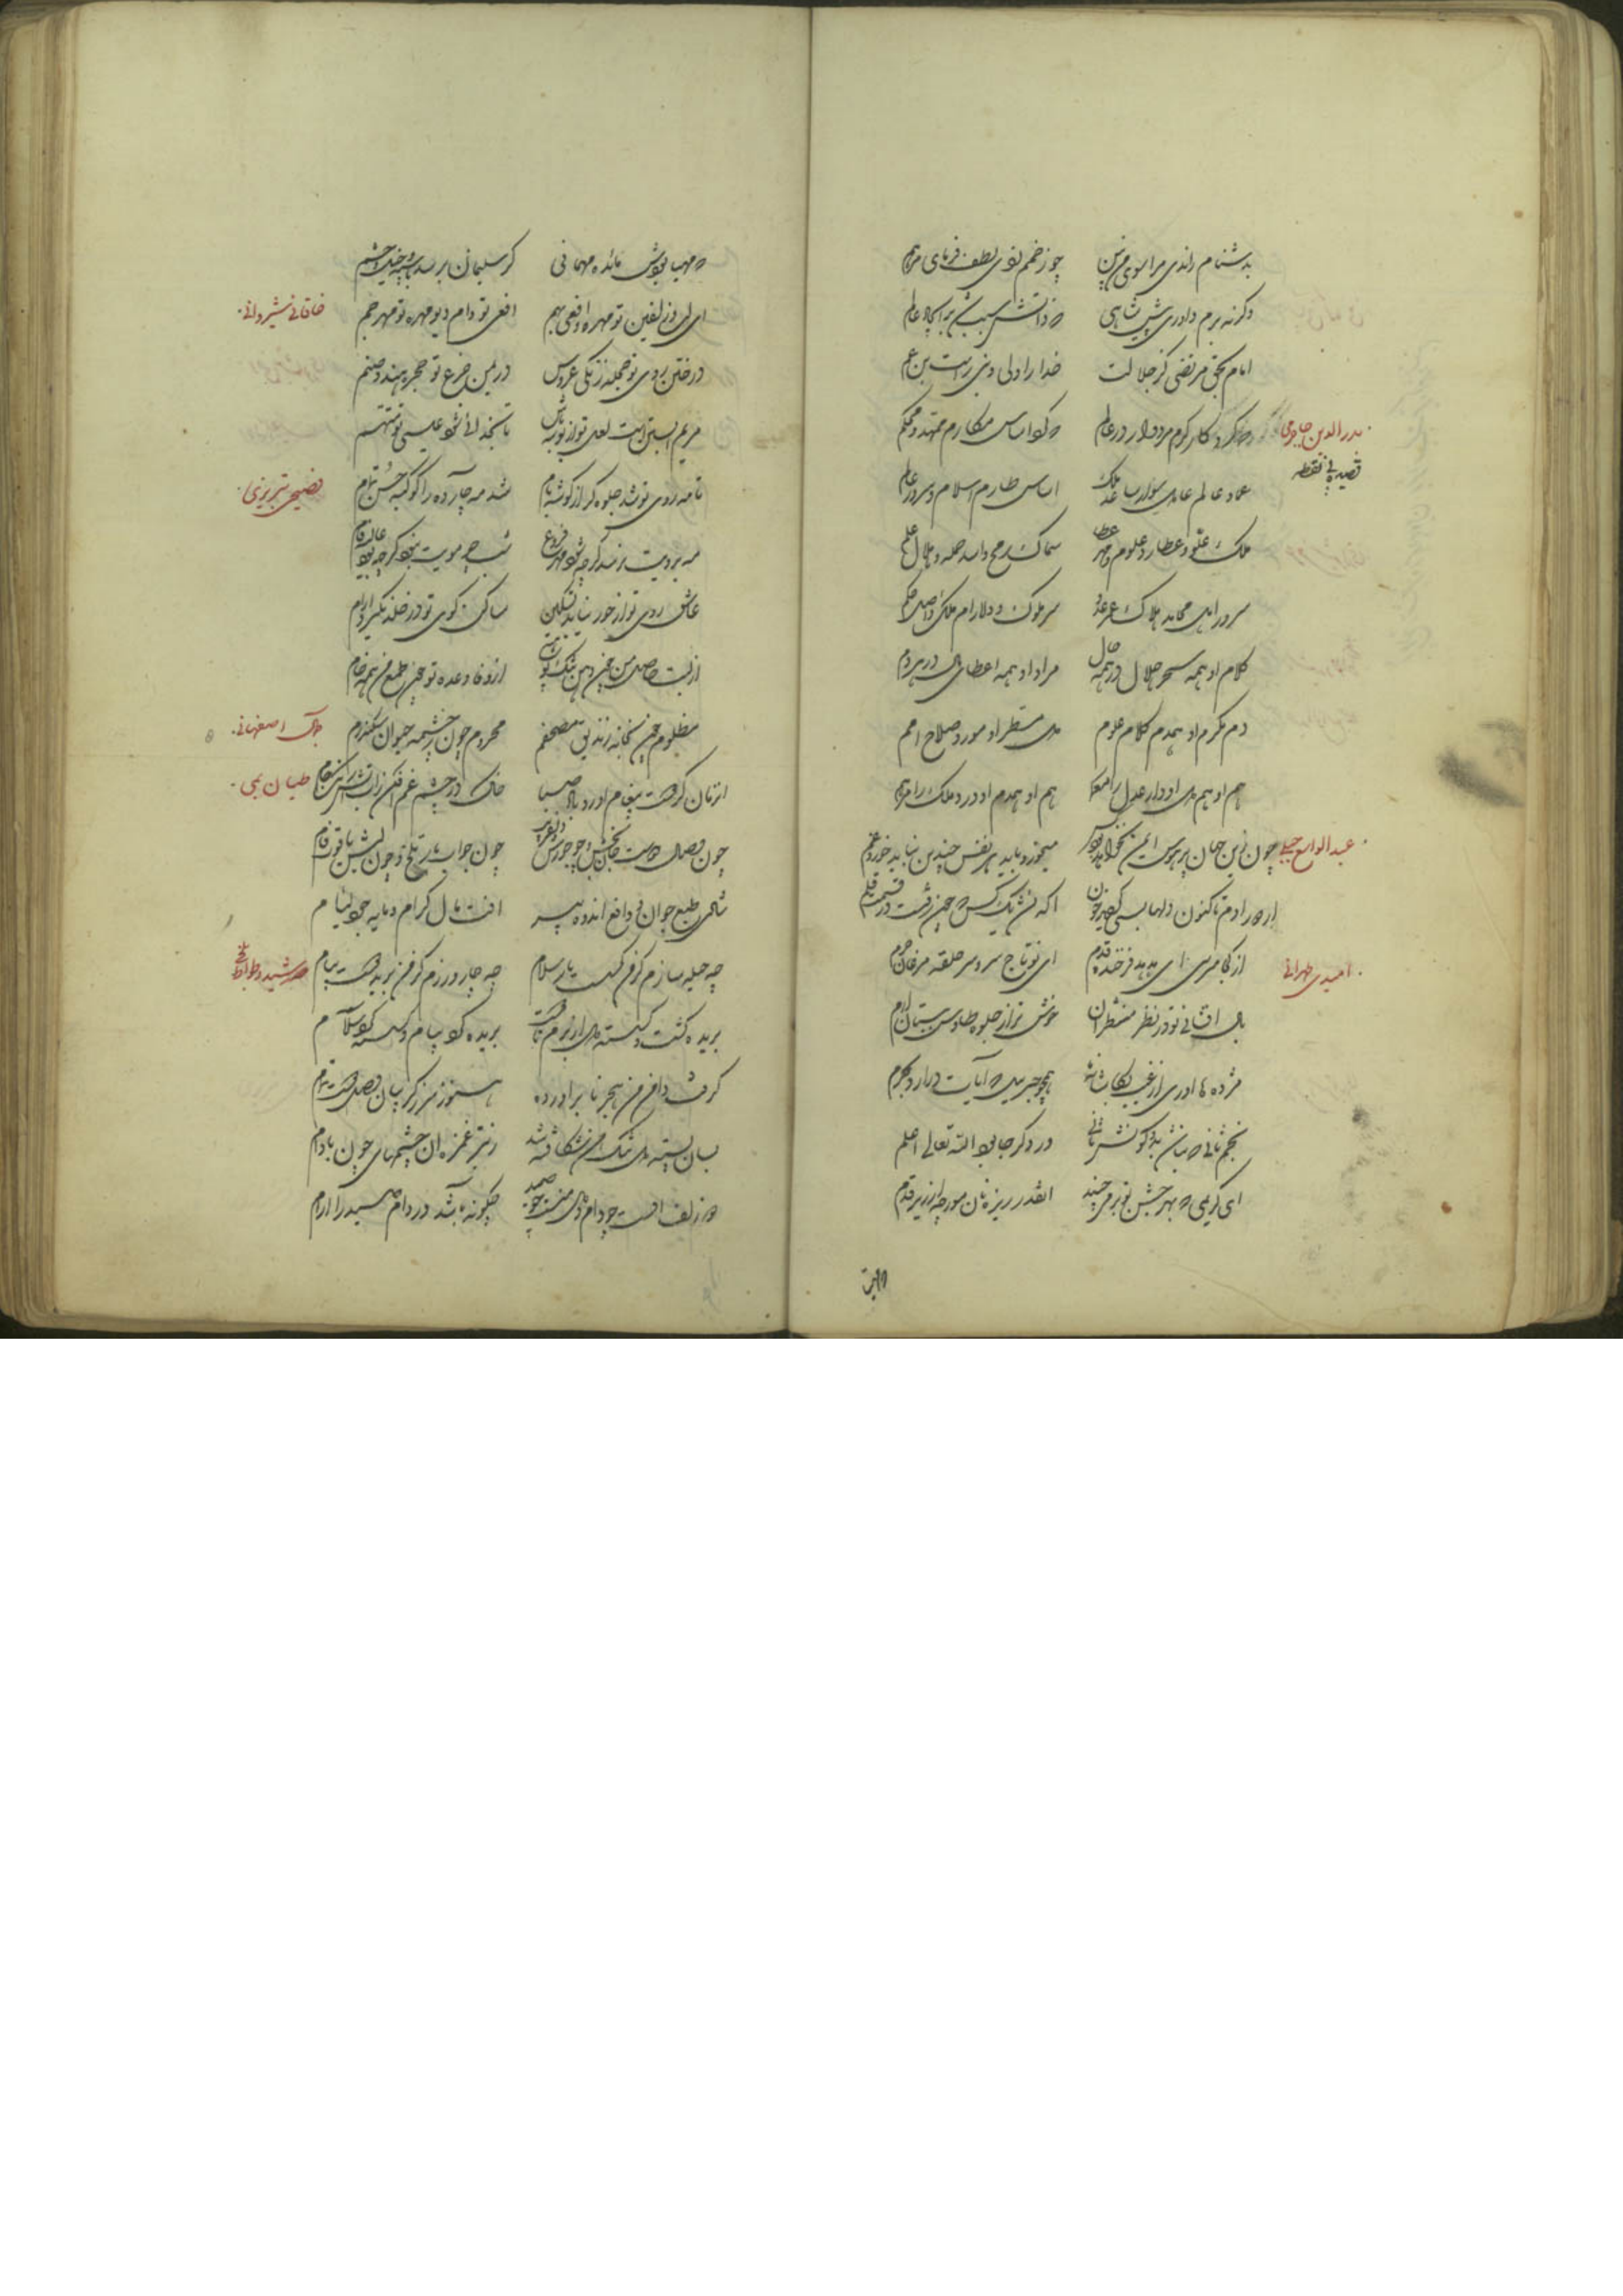 بدشنام راندی مرا سوی من بین چو زخمم زدی لطف فرمای مرهم
وگرنه برم داوری پیش شاهی که ذاتش سبب شد بر ایجاد عالم
امام بحق مرتضی کز جلالت خدا را ولی و نبی راست بن عم
بدرالدین جاجرمی
قصیده بی نقطه
که کرد کار کرم مردوار در عالم که کرد اساس مکارم ممهد و محکم
عماد عالم عادل سوار ساعد ملک اساس طارم اسلام و سرور عالم
ملک علو و عطارد علوم و مهر عطا سماک رمح و اسد حمله و هلال علم
سرور اهل محامد هلاک عمر عدو سر ملوک و دلارام ملک و اصل حکم
کلام او همه سحر حلال در همه حال مراد او همه اعطای مال در هر دم
دم مکرم او همدم کلام علوم دل مطهر او مورد صلاح امم
هم او و هم دل او دار عدل را معمار هم او و همدم او درد ملک را مرهم
عبدالواسع جبلی
چون زین جهان پر هوس ایمن نخواهد بود کس میخورد باید هر نفس چندین نباید خورد غم
از دور آدم تا کنون دلها بسی کردست خون آگه نشد یک کس که چون رفتست در قسمت قلم
امیدی طهرانی
از کجا میرسی ای هدهد فرخنده قدم ای تو تاج سر و سر حلقه مرغان حرم
بال افشانی تو در نظر منتظران خوش تر از جلوه طاوس بستان ارم
مژده ها آوری از غیب همچو جبریل که آیات در آرد بحرم
نجم ثانی که نباشد بدو کونش ثانی در دگر جا بود الله تعالی اعلم
ای کریمی که بهر جشن تو برمی چیند آنقدر ریزه نان مورچه از زیر قدم
که مهیا بودش مائده مهمانی گر سلیمان برسد با سپه و خیل و حشم
خاقانی شیروانی
ای لب و زلفین تو مهره و افعی بهم افعی تو دام دیو مهره تو مهر جم
در ختن روی تو حجله زنگی عروس در یمن جزع تو حجره هندو صنم
مریم آبستن است لعل تو از بوسه باش تا بخدائی شود عیسی تو متهم
فصیحی تبریزی
تا مه روی تو شد جلوه گر از گوشه بام شد مه چارده را کوکبه حسن تمام
مه برویت نرسد گرچه شود مهر فروغ شب چو مویت نبود گرچه بود غالیه فام
عاشق روی تو از حور نیابد تسکین ساکن کوی تو در خلد نگیرد آرام
از لبت حاصل من چون دهن تنگ تو هیچ از وفا وعده تو چون طمع من همه خام
جلال اصفهانی
مظلوم چون بخانه زندیق مصحفم محروم چون ز چشمه حیوان سکندرم
طیان بمی
از نان کز دوست پیغام آورد باد صبا خاک در چشم غم افکن زآب آتش رنگ جام
چون وصال دوست جان بخش و چو جورش دلفریب چون جواب یار تلخ و چون لبش یاقوت فام
شادی طبع جوان و دافع اندوه پیر آفت مال کرام و مایه جود لئام
رشید وطواط بلخی
چه حیله سازم کز من گسست یار سلام چه چاره ورزم کز من برید دوست پیام
بریده گشت و گسسته دل از برم تا دوست بریده کرد پیام و گسسته کرد سلام
گرفت دامن من هجر نابر آورده هنوز سرز گریبان وصل دوست تمام
بسان پسته دل تنگ من شکافته شد ز تیر غمزه آن چشمهای چون بادام
دو زلف اوست چو دام و دل منست چو صید چگونه باشد در دام صید را آرام